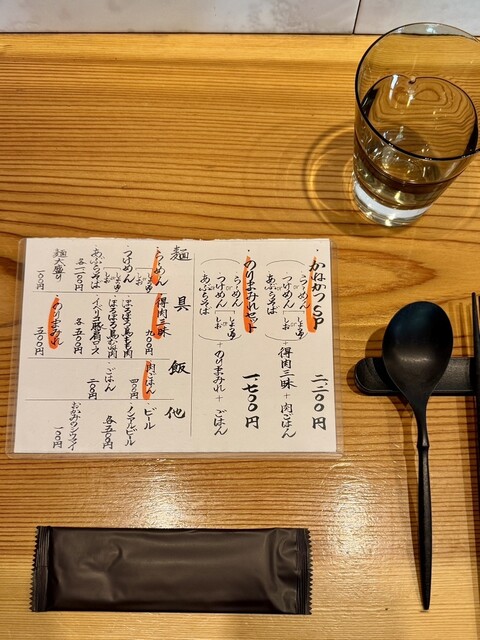 ・かなかつSP 二、二〇〇円
らーめん
or
つけめん
or
あぶらそば
しょうゆ
or
しお
+得肉三昧+肉ごはん
・のりまみれセット 一、七〇〇円
らーめん
or
つけめん
or
あぶらそば
しょうゆ
or
しお
+のりまみれ+ごはん
麺
・らーめん
・つけめん
しょうゆ
or
しお
・あぶらそば
各一、一〇〇円
麺大盛り
一〇〇円
具
・得肉三昧 九〇〇円
・ほろほろ鳥もも肉
・イベリコ豚肩ロース
各五〇〇円
・のりまみれ
五〇〇円
飯
・肉ごはん
四〇〇円
・ごはん
二〇〇円
他
・ビール
・ノンアルビール
各五〇〇円
一〇〇円